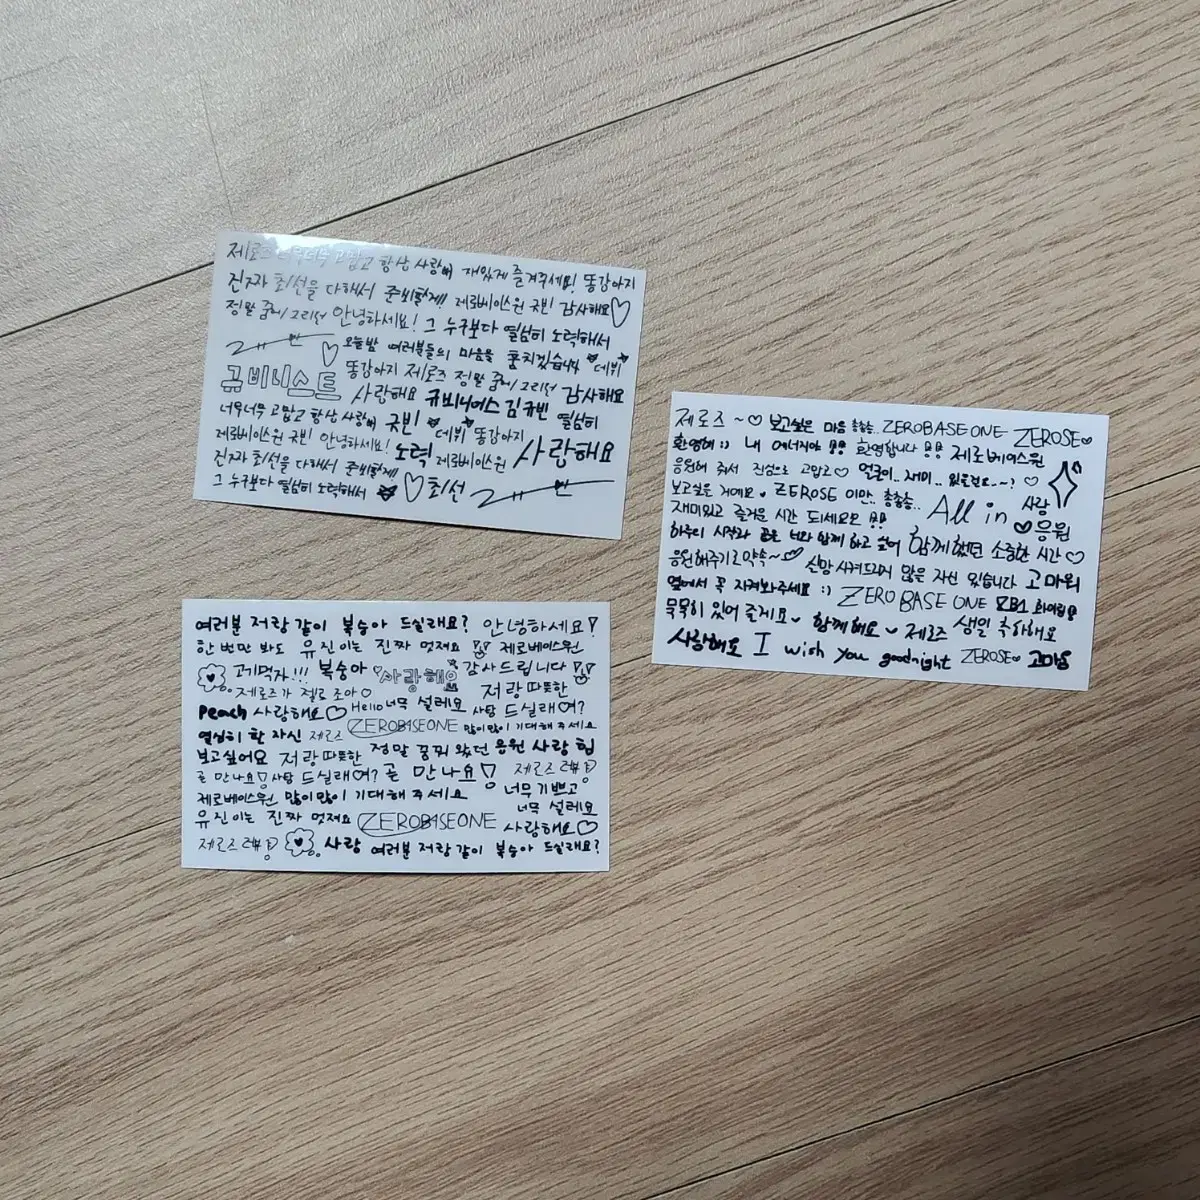 제로즈 너무너무 고맙고 항상 사랑해 재밌게 즐겨주세요! 똥강아지
진짜 최선을 다해서 준비할게! 제로베이스원 규빈 감사해요♡
정말 줌니/그리선 안녕하세요! 그 누구보다 열심히 노력해서
오늘밤 여러분들의 마음을 훔치겠습니다 데뷔
규비니스트 똥강아지 제로즈 정말 줌니/그리선 감사해요
사랑해요 큐비니어스 김규빈 열심히
너무너무 고맙고 항상 사랑해 규빈 데뷔 똥강아지
제로베이스원 규빈 안녕하세요! 노력 제로베이스원 사랑해요
진짜 최선을 다해서 준비할게
그 누구보다 열심히 노력해서 ♡최선
제로즈~♡ 보고싶은 마음 총총총.. ZEROBASEONE ZEROSE♥
환영해:) 내 에너지야 환영합니다 제로베이스원
응원해 줘서 진심으로 고맙고♡ 얼굴이.. 재미.. 있을건요..~? ♡
보고싶은 거예요 ♥ ZEROSE 이만.. 총총총.. All in 사랑
재미있고 즐거운 시간 되세요오 ♥응원
하루의 시작과 끝은 너와 함께 하고 싶어 함께했던 소중한 시간♡
응원해주기로 약속~♥ 실망시켜드리지 않을 자신 있습니다 고마워
옆에서 꼭 지켜봐주세요 :) ZEROBASEONE ZB1 화이팅
묵묵히 있어 줄게요♥ 함께해요♥ 제로즈 생일 축하해요
사랑해요 I wish you goodnight ZEROSE♥ 고마움
여러분 저랑같이 복숭아 드실래요? 안녕하세요!
한 번만 봐도 유진이는 진짜 멋져요 제로베이스원
고기먹자!!! 복숭아 사랑해요 감사드립니다
제로즈가 젤로 조아♡ 저랑따뜻한
Peach 사랑해요♡ Hello 너무 설레요 사탕 드실래여?
열심히 할 자신 제로즈 ZEROBASEONE 많이많이 기대해주세요
보고싶어요 저랑따뜻한 정말 꿈꿔 왔던 응원 사랑 힘
곧 만나요! 사탕 드실래여? 곧 만나요! 제로즈
제로베이스원 많이많이 기대해주세요 너무기쁘고
유진이는 진짜 멋져요 ZEROBASEONE 너무 설레요
사랑해요♡
제로즈 사랑 여러분 저랑같이 복숭아 드실래요?